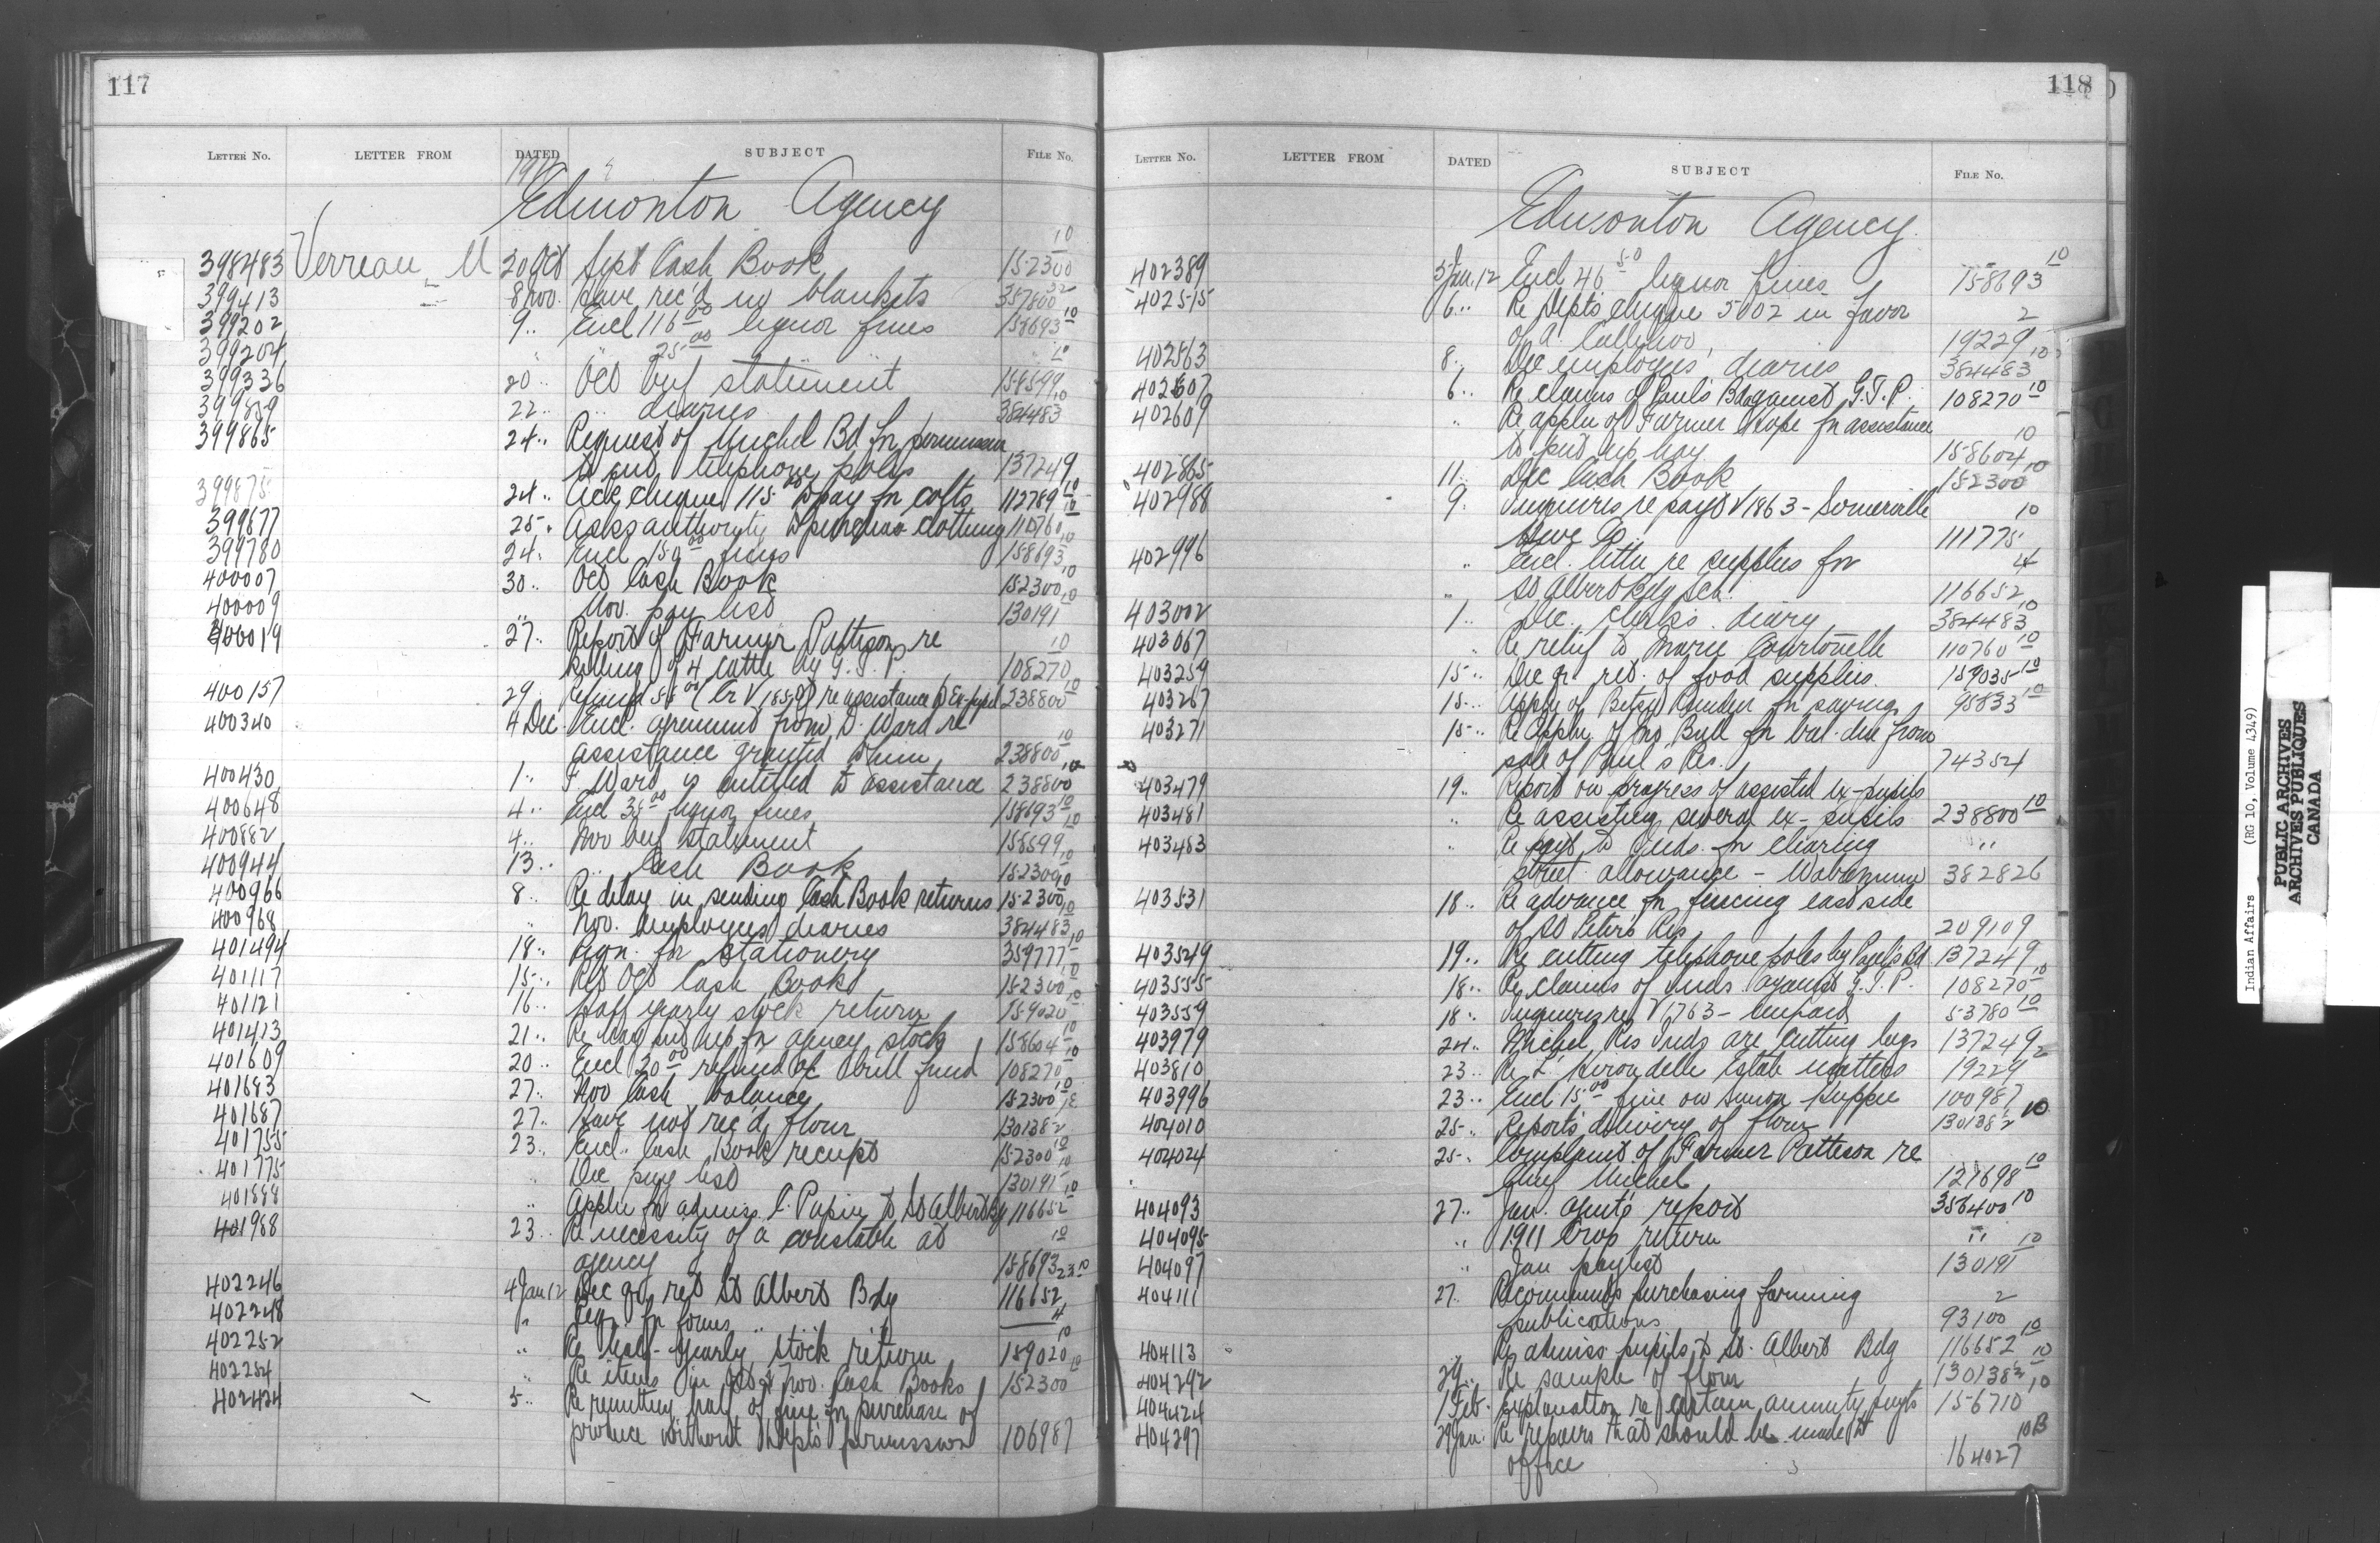 117
LETTER NO. LETTER FROM DATED SUBJECT FILE NO.
Edmonton Agency
398483 Verreau M 30 Oct Sept Cash Book 152300 10
399413 " 8 Nov. Have rec'd no blankets 357800 32
399202 9 " Encl 116 00 liquor fines 158693 10
399204 " " 25 00 " " " 10
399336 20 " Oct beef statement 158599 10
399859 22 " " diaries 384483
399865 24 " Request of Michel Bd for permission
to cut telephone poles 137249
399875 24 " Ack cheque 115 to pay for colts 112789 10
399677 25 " Asks authority to purchase clothing 110760 10
399780 24 " Encl 150 00 fines 158693 10
400007 30 " Oct Cash Book 152300 10
400009 " Nov. pay list 130191 10
400019 27 " Report of Farmer Pattison re 10
killing of 4 cattle by G. T. P. 108270
400157 29 Refund 55 00 (Cr V 1859) re assistance to Ex-pupil 238800 10
400340 4 Dec Encl. agreement from D. Ward re 10
assistance granted him 238800
400430 1 " F Ward is entitled to assistance 238800 10
400648 4 " Encl 35 00 liquor fines 158693 10
400882 4 " Nov beef statement 158599 10
400944 13 " " Cash Book 152300 10
400966 8 " Re delay in sending Cash Book returns 152300 10
400968 " Nov. employees diaries 384483
401494 18 " Reqn. for stationery 359777 10
401117 15 " Ret Oct Cash Book 152300 10
401121 16 " Half yearly stock return 159020 10
401413 21 " Re hay put up for agency stock 158604 10
401609 20 " Encl 20 00 refund a/c bull fund 108270 10
401683 27 " Nov Cash balance 152300 10
401687 27 " Have not rec'd flour 130138 2
401755 23 " Encl. Cash Book receipt 152300 10
401775 " Dec pay list 130191 10
401888 " Appln for admiss. C. Papin to St Albert Bdg 116652 10
401988 23 " Re necessity of a constable at 10
agency 158693
402246 4 Jan 12 Dec qr ret St Albert Bdg 116652 23-10
402248 " Reqn for forms " " 4
402252 " Re half-yearly stock return 159020 10
402254 " Re items in Oct & Nov. Cash Books 152300 10
402424 5 " Re remitting half of fine for purchase of
produce without Dept's permission 106987
118
LETTER NO. LETTER FROM DATED SUBJECT FILE NO.
Edmonton Agency
402389 5 Jan. 12 Encl 46 50 liquor fines 158693 10
402515 6 " Re Dept's cheque 5002 in favor 2
of A. Callihoo 19229
402563 8 " Dec employees' diaries 384483 10
402607 6 " Re claims of Paul's Bd against G. T. P. 108270 10
402609 " Re appln of Farmer Hope for assistance 10
to put up hay 158604
402865 11 " Dec Cash Book 152300 10
402988 9 " Inquires re payt V 1863 - Somerville 10
Hdwe Co 111775
402996 " Encl. letter re supplies for 4
St Albert Bdg Sch. 116652
403002 1 " Dec. clerk's diary 384483 10
403067 " Re relief to Marie Courtorielle 110760 10
403259 15 " Dec qr ret. of food supplies 159035 10
403267 15 " Appln of Betsy for 95833 10
403271 15 " Re Appln of Jno Bull for bal. due from
sale of Paul's Res. 74352 4
403479 19 " Report on progress of assisted ex-pupils
403481 " Re assisting several ex-pupils 238800 10
403483 " Re payt to Inds. for clearing "
street allowance - Wabamun 382826
403531 18 " Re advance for fencing east side
of St Peters Res 209109
403549 19 " Re cutting telephone poles by Paul's Bd 137249
403555 18 " Re claims of Inds. against G. T. P. 108270 10
403559 18 " Inquires re V 1763 - unpaid 53780 10
403979 24 " Michel Res Inds are cutting logs 137249
403810 23 " Re L'Hirondelle Estate matters 19229 2
403996 23 " Encl 15 00 fine on Simon 100987
404010 25 " Reports delivery of flour 130138 2 10
404024 25 " Complaint of Farmer Pattison re
Chief Michel 127698 10
404093 27 " Jan. agent's report 356400 10
404095 " 1911 Crop return " 10
404097 " Jan paylist 130191
404111 27 " Recommends purchasing farming 2
publications 93100
404113 " Re admiss pupils to St. Albert Bdg 116652 10
404292 29 " Re sample of flour 130138 2 10
404424 1 Feb. Explanation re certain annuity payts 156710 10
404297 29 Jan. Re repairs that should be made to 10B
office 164027
Indian Affairs (RG 10, Volume 4349)
PUBLIC ARCHIVES
ARCHIVES PUBLIQUES
CANADA